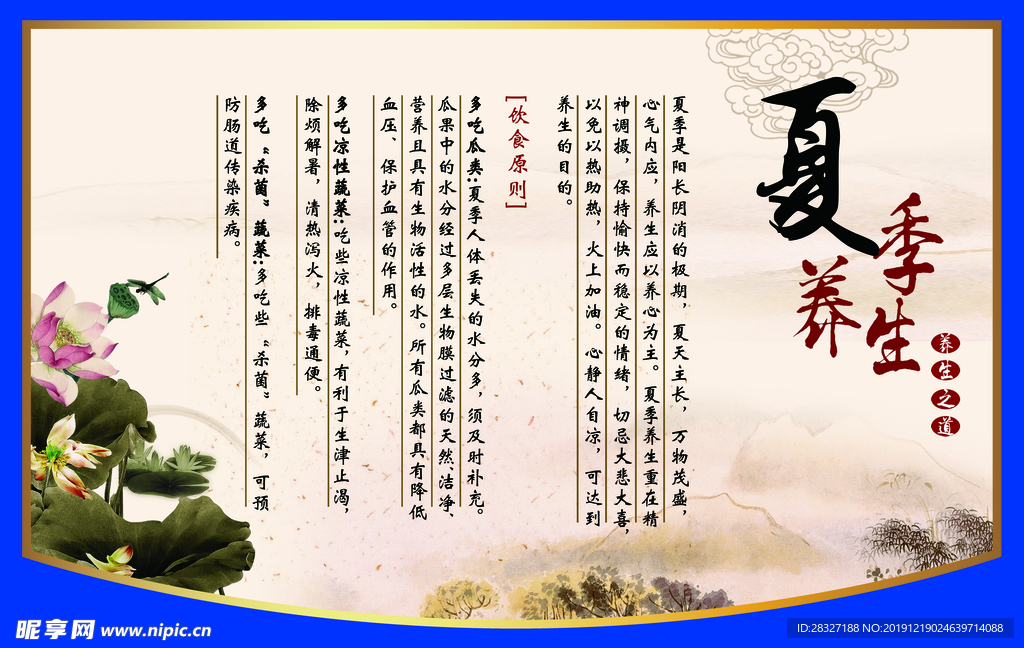 夏季养生
养生之道
夏季是阳长阴消的极期，夏天主长，万物茂盛，
心气内应，养生应以养心为主。夏季养生重在精
神调摄，保持愉快而稳定的情绪，切忌大悲大喜，
以免以热助热，火上加油。心静人自凉，可达到
养生的目的。
[饮食原则]
多吃瓜类:夏季人体丢失的水分多，须及时补充。
瓜果中的水分经过多层生物膜过滤的天然、洁净、
营养且具有生物活性的水。所有瓜类都具有降低
血压、保护血管的作用。
多吃凉性蔬菜:吃些凉性蔬菜，有利于生津止渴，
除烦解暑，清热泻火，排毒通便。
多吃“杀菌”蔬菜:多吃些“杀菌”蔬菜，可预
防肠道传染疾病。
昵享网 www.nipic.cn
ID:28327188 NO:20191219024639714088